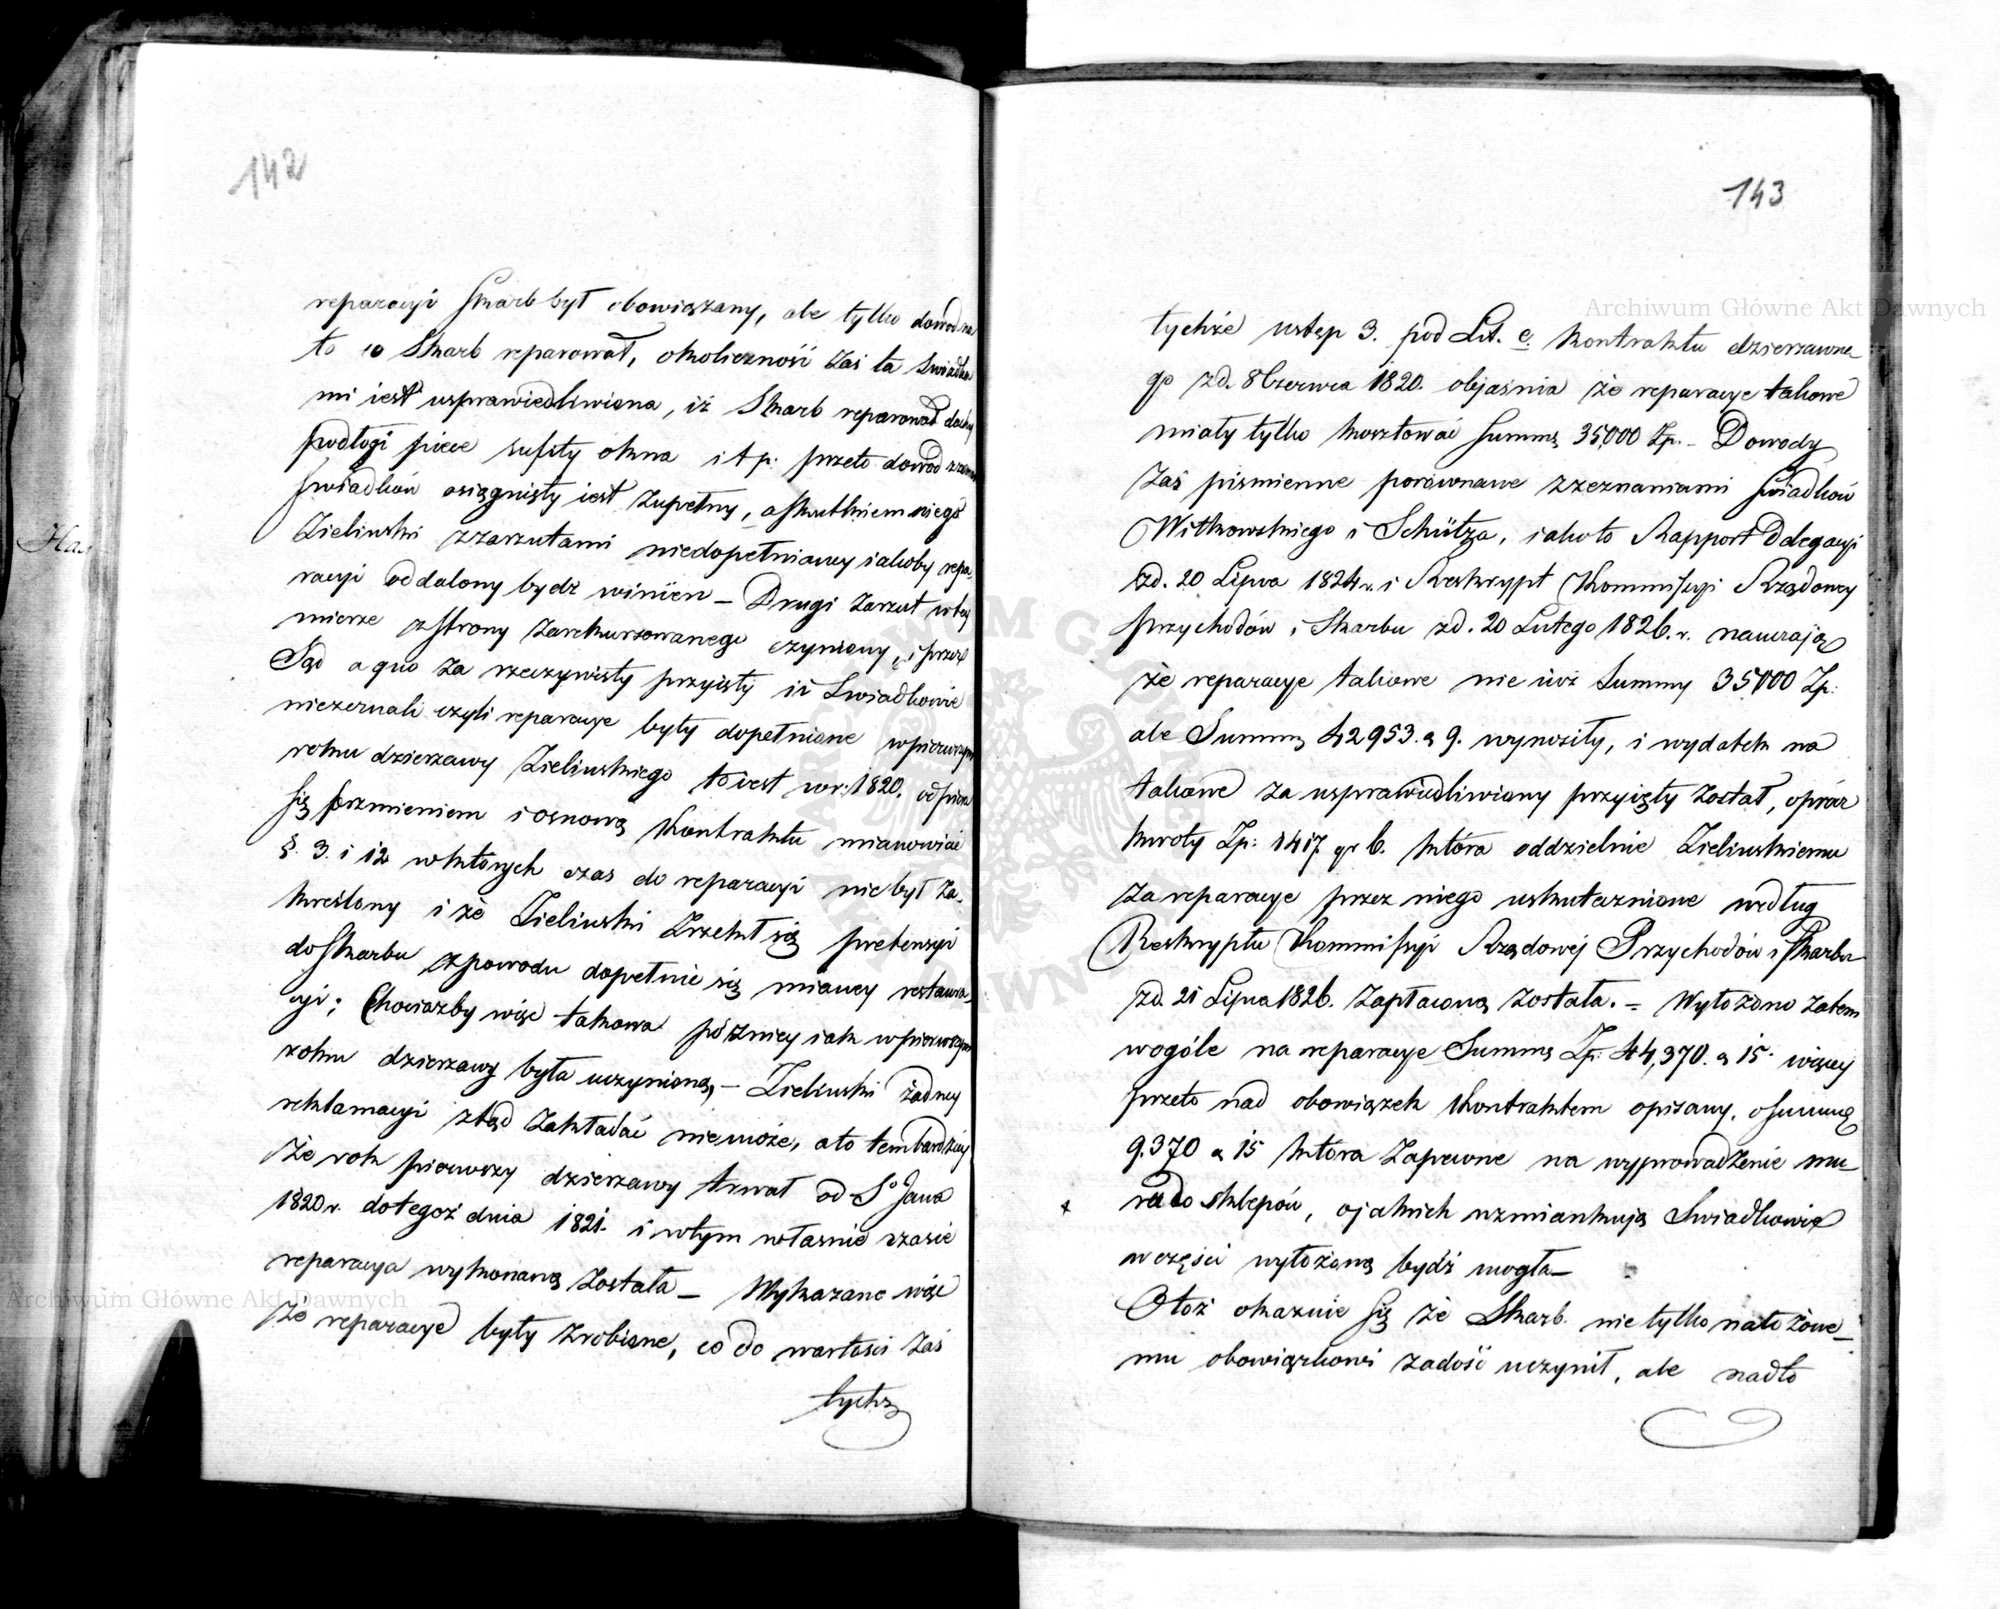 142
reparacyi Skarb był obowiązany, ale tylko dowod na
to co Skarb reparował, okoliczność zaś ta Swiadka
mi iest usprawiedliwiona, iż Skarb reparował dachy
podłogi piece sufity okna i t p: przeto dowod z zeznań
swiadków osiągnięty iest zupełny, a skutkiem niego
Zieliński z zarzutami niedopełnianey iakoby repa-
racyi oddalony bydź winien – Drugi zarzut w tey
mierze z strony zarekursowanego czyniony, i przez
Sąd a quo za rzeczywisty przyięty iż Swiadkowie
niezeznali czyli reparacye były dopełnione w pierwszym
roku dzierzawy Zielinskiego to iest w r: 1820. odpiera
się brzmieniem i osnową Kontraktu mianowicie
§. 3. i 12 w których czas do reparacyi nie był za-
kreślony i że Zieliński zrzekł się pretensyi
do Skarbu z powodu dopełnić się miancy restaura-
cyi; Chociażby więc takowa pozniey iak w pierwszym
roku dzierzawy była uczynioną, – Zieliński żadney
reklamacyi ztąd zakładać nie może, a to tembardziey
że rok pierwszy dzierzawy trwał od So Jana
1820 r. do tegoż dnia 1821. i w tym własnie czasie
reparacya wykonaną została – Wykazano więc
że reparacye były zrobione, co do wartości zaś
tychże
143
tychże ustęp 3. pod Lit. e. Kontraktu dzierzawne
go z d. 8 Czerwca 1820. objaśnia że reparacye takowe
miały tylko kosztować Summę 35,000 Zp. – Dowody
zaś pismienne porównane z zeznaniami swiadków
Witkowskiego i Schütza, iako to Rapport Delegacyi
z d. 20 Lipca 1824 r. i Reskrypt Kommissyi Rządowey
Przychodów i Skarbu z d. 20 Lutego 1826. r. nauczają
że reparacye takowe nie iuż Summy 35000 Zp:
ale Summę 42953. g 9. wynosiły, i wydatek na
takowe za usprawiedliwiony przyięty został, oprócz
kwoty Zp: 1417 gr 6. która oddzielnie Zielinskiemu
za reparacye przez niego uskutecznione według
Reskryptu Kommissyi Rządowéj Przychodów i Skarbu
z d. 21 Lipca 1826. zapłaconą została. – Wyłożono zatem
wogóle na reparacye Summę Zp: 44,370. g 15. więcey
przeto nad obowiązek Kontraktem opisany, o summę
9.370 g 15 która zapewne na wyprowadzenie mu
ru do sklepów, o jakich wzmiankują Swiadkowie
w części wyłożoną bydź mogła –
Otoż okazuie się że Skarb. nie tylko nałożone-
mu obowiązkowi zadość uczynił, ale nadto
Archiwum Główne Akt Dawnych
Archiwum Główne Akt Dawnych